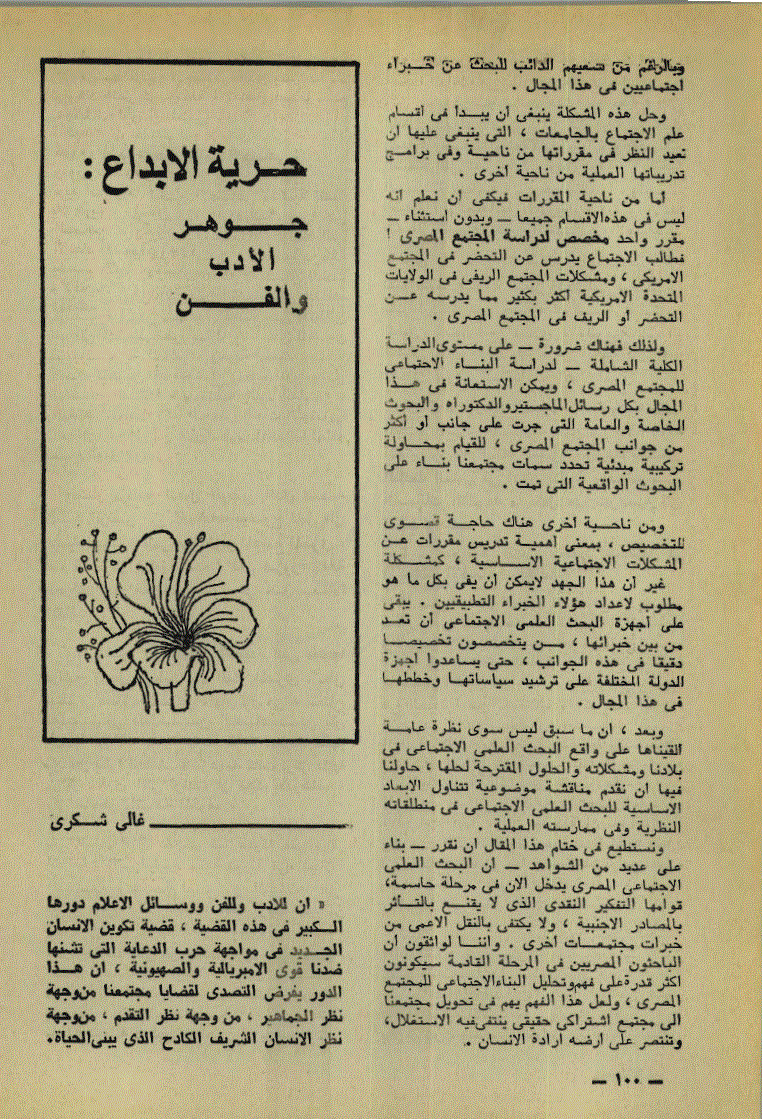 وبالرغم من سعيهم الدائب للبحث عن خبراء
اجتماعيين فى هذا المجال .
وحل هذه المشكلة ينبغى أن يبدأ فى أقسام
علم الاجتماع بالجامعات ، التى ينبغى عليها أن
تعيد النظر فى مقرراتها من ناحية وفى برامج
تدريباتها العملية من ناحية أخرى .
أما من ناحية المقررات فيكفى أن نعلم أنه
ليس فى هذه الاقسام جميعا ــ وبدون استثناء ــ
مقرر واحد مخصص لدراسة المجتمع المصرى !
فطالب الاجتماع يدرس عن التحضر فى المجتمع
الامريكى ، ومشكلات المجتمع الريفى فى الولايات
المتحدة الامريكية أكثر بكثير مما يدرسه عن
التحضر أو الريف فى المجتمع المصرى .
ولذلك فهناك ضرورة ــ على مستوى الدراسة
الكلية الشاملة ــ لدراسة البناء الاجتماعى
للمجتمع المصرى ، ويمكن الاستعانة فى هذا
المجال بكل رسائل الماجستير والدكتوراه والبحوث
الخاصة والعامة التى جرت على جانب أو أكثر
من جوانب المجتمع المصرى ، للقيام بمحاولة
تركيبية مبدئية تحدد سمات مجتمعنا بناء على
البحوث الواقعية التى تمت .
ومن ناحسية أخرى هناك حاجة قصوى
للتخصيص ، بمعنى أهمية تدريس مقررات عن
المشكلات الاجتماعية الاساسية ، كمشكلة
غير أن هذا الجهد لايمكن أن يفى بكل ما هو
مطلوب لاعداد هؤلاء الخبراء التطبيقيين . يبقى
على أجهزة البحث العلمى الاجتماعى أن تعد
من بين خبرائها ، من يتخصصون تخصيصا
دقيقا فى هذه الجوانب ، حتى يساعدوا أجهزة
الدولة المختلفة على ترشيد سياساتها وخططها
فى هذا المجال .
وبعد ، ان ما سبق ليس سوى نظرة عامة
القيناها على واقع البحث العلمى الاجتماعى فى
بلادنا ومشكلاته والحلول المقترحة لحلها ، حاولنا
فيها أن نقدم مناقشة موضوعية تتناول الابعاد
الاساسية للبحث العلمى الاجتماعى فى منطلقاته
النظرية وفى ممارسته العملية .
ونستطيع فى ختام هذا المقال أن نقرر ــ بناء
على عديد من الشواهد ــ أن البحث العلمى
الاجتماعى المصرى يدخل الآن فى مرحلة حاسمة،
قوامها التفكير النقدى الذى لا يقنع بالتأثر
بالمصادر الاجنبية ، ولا يكتفى بالنقل الاعمى من
خبرات مجتمعات أخرى . وأننا لواثقون أن
الباحثون المصريين فى المرحلة القادمة سيكونون
أكثر قدرة على فهم وتحليل البناء الاجتماعى للمجتمع
المصرى ، ولعل هذا الفهم يهم فى تحويل مجتمعنا
الى مجتمع اشتراكى حقيقى ينتفى فيه الاستغلال،
وتنتصر على أرضه ارادة الانسان .
حرية الابداع :
جوهر
الأدب
والفن
غالى شكرى
« ان للادب وللفن ووسائل الاعلام دورها
الكبير فى هذه القضية ، قضية تكوين الانسان
الجديد فى مواجهة حرب الدعاية التى تشنها
ضدنا قوى الامبريالية والصهيونية ، ان هذا
الدور يفرض التصدى لقضايا مجتمعنا من وجهة
نظر الجماهير ، من وجهة نظر التقدم ، من وجهة
نظر الانسان الشريف الكادح الذى يبنى الحياة.
ــ ١٠٠ ــ